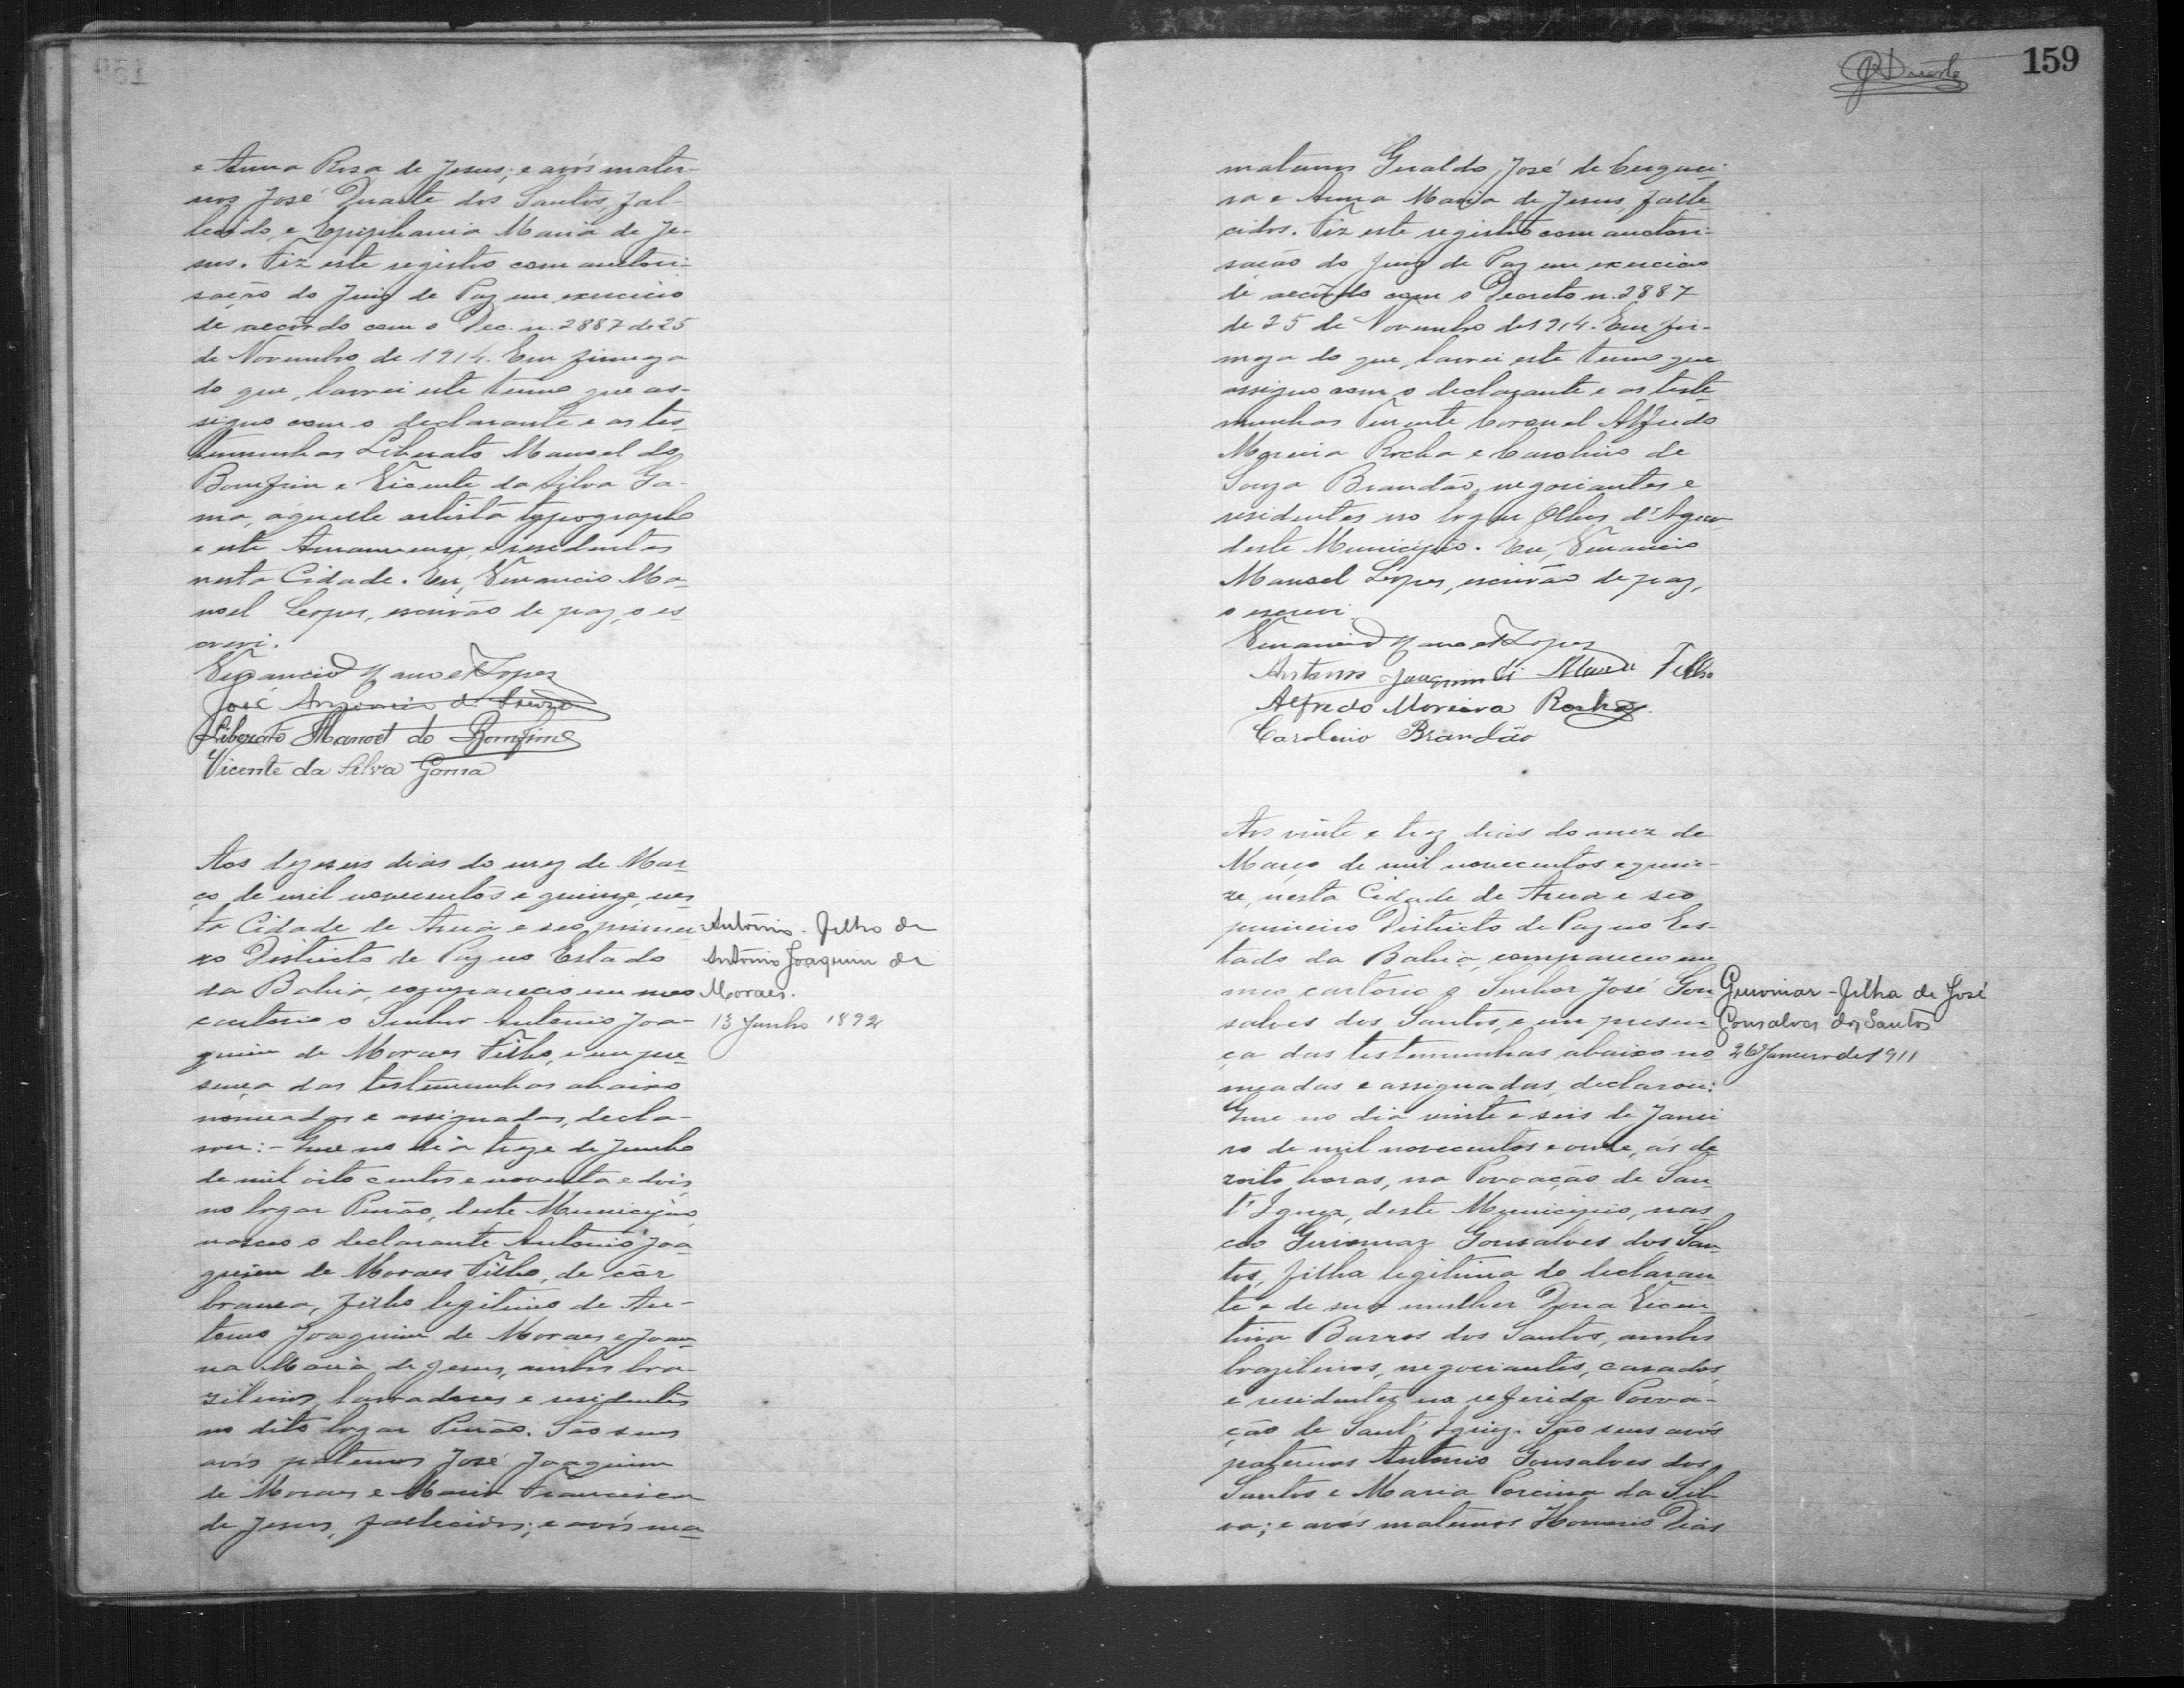 e Anna Rosa de Jesus; e avós mater-
nos José Duarte dos Santos, fal-
lecido, e Epiphania Maria de Je-
sus. Fiz este registro com auctori-
sação do Juiz de Paz em exercicio
de accôrdo com o Dec. n. 2887 de 25
de Novembro de 1914. Em firmeza
do que, lavrei este termo que as-
signo com o declarante e as tes-
temunhas Liberato Manoel do
Bomfim e Vicente da Silva Ga-
ma, aquelle artista typographo
e este Amanuense, e residentes
nesta Cidade. Eu, Venancio Ma-
noel Lopes, escrivão de paz, o es-
crevi.
Venancio Manoel Lopes
José Antonio de Souza
Liberato Manoel do Bomfim
Vicente da Silva Gama
Aos dezeseis dias do mez de Mar-
ço de mil novecentos e quinze, nes-
ta Cidade de Areia e seo primei-
ro Districto de Paz no Estado
da Bahia, compareceo em meo
cartorio o Senhor Antonio Joa-
quim de Moraes Filho, e em pre-
sença das testemunhas abaixo
nomeadas e assignadas, decla-
rou: - Que no dia treze de Junho
de mil oito centos e noventa e dois,
no logar Pinão, deste Municipio,
nasceo o declarante Antonio Joa-
quim de Moraes Filho, de côr
branca, filho legitimo de An-
tonio Joaquim de Moraes e Joan-
na Maria de Jesus, ambos bra-
zileiros, lavradores e residentes
no dito logar Pinão. São seus
avós paternos José Joaquim
de Moraes e Maria Francisca
de Jesus, fallecidos; e avós ma-
Antonio - filho de
Antonio Joaquim de
Moraes.
13 Junho 1892
159
maternos Geraldo José de Cerquei-
ra e Anna Maria de Jesus, falle-
cidos. Fiz este registro com auctori-
sação do Juiz de Paz em exercicio
de accôrdo com o Decreto n. 2887
de 25 de Novembro de 1914. Em fir-
meza do que, lavrei este termo que
assigno com o declarante e as teste-
munhas Tenente Coronel Alfredo
Moreira Rocha e Carolino de
Souza Brandão, negociantes e
residentes no logar Olhos d'Agua
deste Municipio. Eu, Venancio
Manoel Lopes, escrivão de paz,
o escrevi.
Venancio Manoel Lopes
Antonio Joaquim di Filho
Alfredo Moreira Rocha.
Carolino Brandão
Aos vinte e trez dias do mez de
Março de mil novecentos e quin-
ze, nesta Cidade de Areia e seo
primeiro Districto de Paz no Es-
tado da Bahia, compareceo em
meo cartorio o Senhor José Gon-
salves dos Santos, e em presen-
ça das testemunhas abaixo no-
meadas e assignadas, declarou:
Que no dia vinte e seis de Janei-
ro de mil novecentos e onze, ás de-
zoito horas, na Povoação de San-
t'Ignez, deste Municipio, nas-
ceo Guiomar Gonsalves dos San-
tos, filha legitima do declaran-
te e de sua mulher Dona Vicen-
tina Barros dos Santos, ambos
brazileiros, negociantes, casados,
e residentes na referida Povoa-
ção de Sant'Ignez. São seus avós
paternos Antonio Gonsalves dos
Santos e Maria Porcina da Sil-
va; e avós maternos Homerio Dias
Guiomar - filha de José
Gonsalves dos Santos
26 Janeiro de 1911